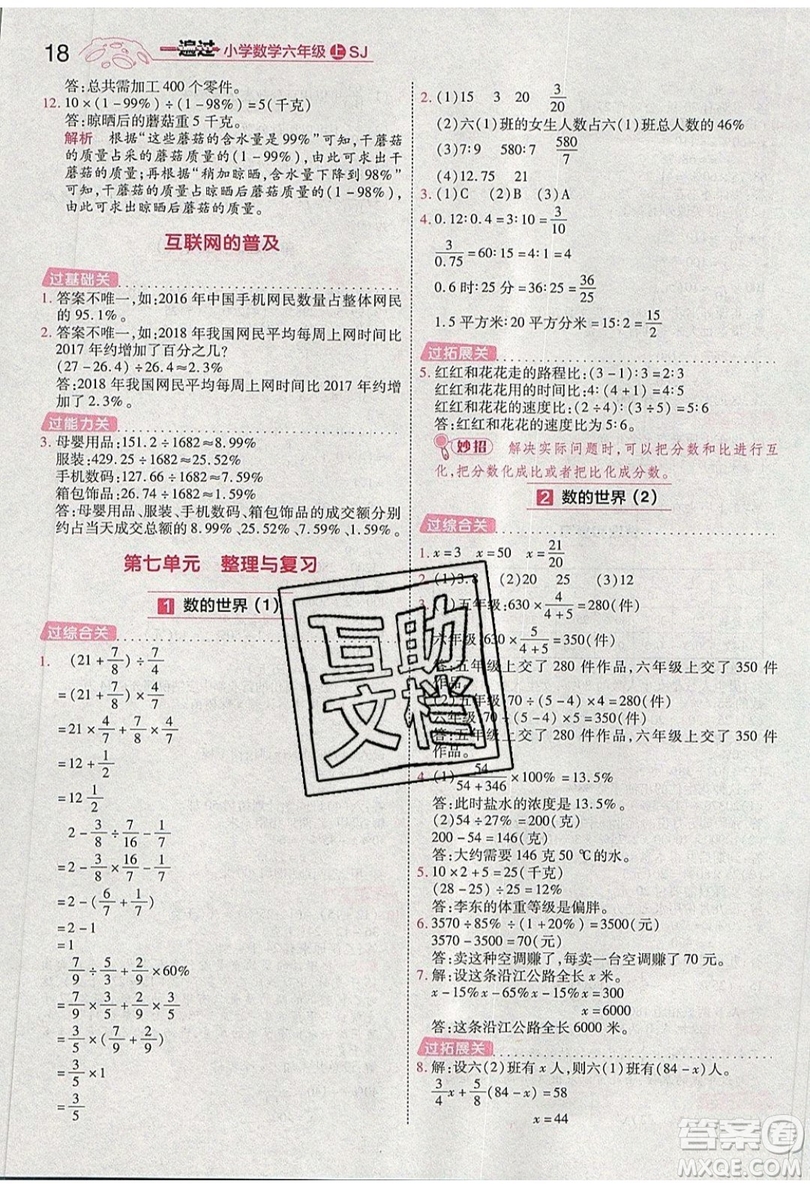 18 一遍过 小学数学六年级 上 SJ
答:总共需加工 400 个零件。
12. 10×(1-99%)÷(1-98%)=5(千克)
答:晾晒后的蘑菇重 5 千克。
解析 根据“这些蘑菇的含水量是 99%”可知,干蘑菇
的质量占采的蘑菇质量的(1-99%),由此可以求出干
蘑菇的质量;再根据“稍加晾晒,含水量下降到 98%”
可知,干蘑菇的质量占晾晒后蘑菇质量的(1-98%),
由此可以求出晾晒后蘑菇的质量。
互联网的普及
过基础关
1. 答案不唯一,如:2016 年中国手机网民数量占整体网民
的 95.1%。
2. 答案不唯一,如:2018 年我国网民平均每周上网时间比
2017 年约增加了百分之几?
(27-26.4)÷26.4≈2.3%
答:2018 年我国网民平均每周上网时间比 2017 年约增
加了 2.3%。
过能力关
3. 母婴用品:151.2÷1682≈8.99%
服装:429.25÷1682≈25.52%
手机数码:127.66÷1682≈7.59%
箱包饰品:26.74÷1682≈1.59%
答:母婴用品、服装、手机数码、箱包饰品的成交额分别
约占当天成交总额的 8.99%、25.52%、7.59%、1.59%。
第七单元 整理与复习
1 数的世界(1)
过综合关
1. (21+7/8)÷7/4
=(21+7/8)×4/7
=21×4/7+7/8×4/7
=12+1/2
=12 1/2
2-3/8÷7/16-1/7
=2-3/8×16/7-1/7
=2-(6/7+1/7)
=2-1
=1
7/9÷5/3+2/9×60%
=7/9×3/5+2/9×3/5
=3/5×(7/9+2/9)
=3/5×1
=3/5
2. (1)15 3 20 3/20
(2)六(1)班的女生人数占六(1)班总人数的 46%
(3)7∶9 580∶7 580/7
(4)12.75 21
3. (1)C (2)B (3)A
4. 0.12∶0.4=3∶10=3/10
3/0.75=60∶15=4
0.6 时∶25 分=36∶25=36/25
1.5 平方米∶20 平方分米=15∶2=15/2
过拓展关
5. 红红和花花走的路程比:(3-1)∶3=2∶3
红红和花花用的时间比:4∶(4+1)=4∶5
红红和花花的速度比:(2÷4)∶(3÷5)=5∶6
答:红红和花花的速度比为 5∶6。
妙招 解决实际问题时,可以把分数和比进行互
化,把分数化成比或者把比化成分数。
2 数的世界(2)
过综合关
1. x=3 x=45 x=21/20
2. (1)3.8
3. (1)五年级:630×4/(4+5)=280(件)
六年级:630×5/(4+5)=350(件)
答:五年级上交了 280 件作品,六年级上交了 350 件
作品。
(2)五年级:70÷(5-4)×4=280(件)
六年级:70÷(5-4)×5=350(件)
答:五年级上交了 280 件作品,六年级上交了 350 件
作品。
4. (1)54/(54+346)×100%=13.5%
答:此时盐水的浓度是 13.5%。
(2)54÷27%=200(克)
200-54=146(克)
答:大约需要 146 克 50 ℃的水。
5. 10×2+5=25(千克)
(28-25)÷25=12%
答:李东的体重等级是偏胖。
6. 3570÷85%÷(1+20%)=3500(元)
3570-3500=70(元)
答:卖这种空调赚了,每卖一台空调赚 70 元。
7. 解:设这条沿江公路全长 x 米。
x-15%x-65%x-15%x=300
x=6000
答:这条沿江公路全长 6000 米。
过拓展关
8. 解:设六(2)班有 x 人,则六(1)班有(84-x)人。
3/4x+5/8(84-x)=58
x=44
互助
文档
答案圈
MXQE.COM